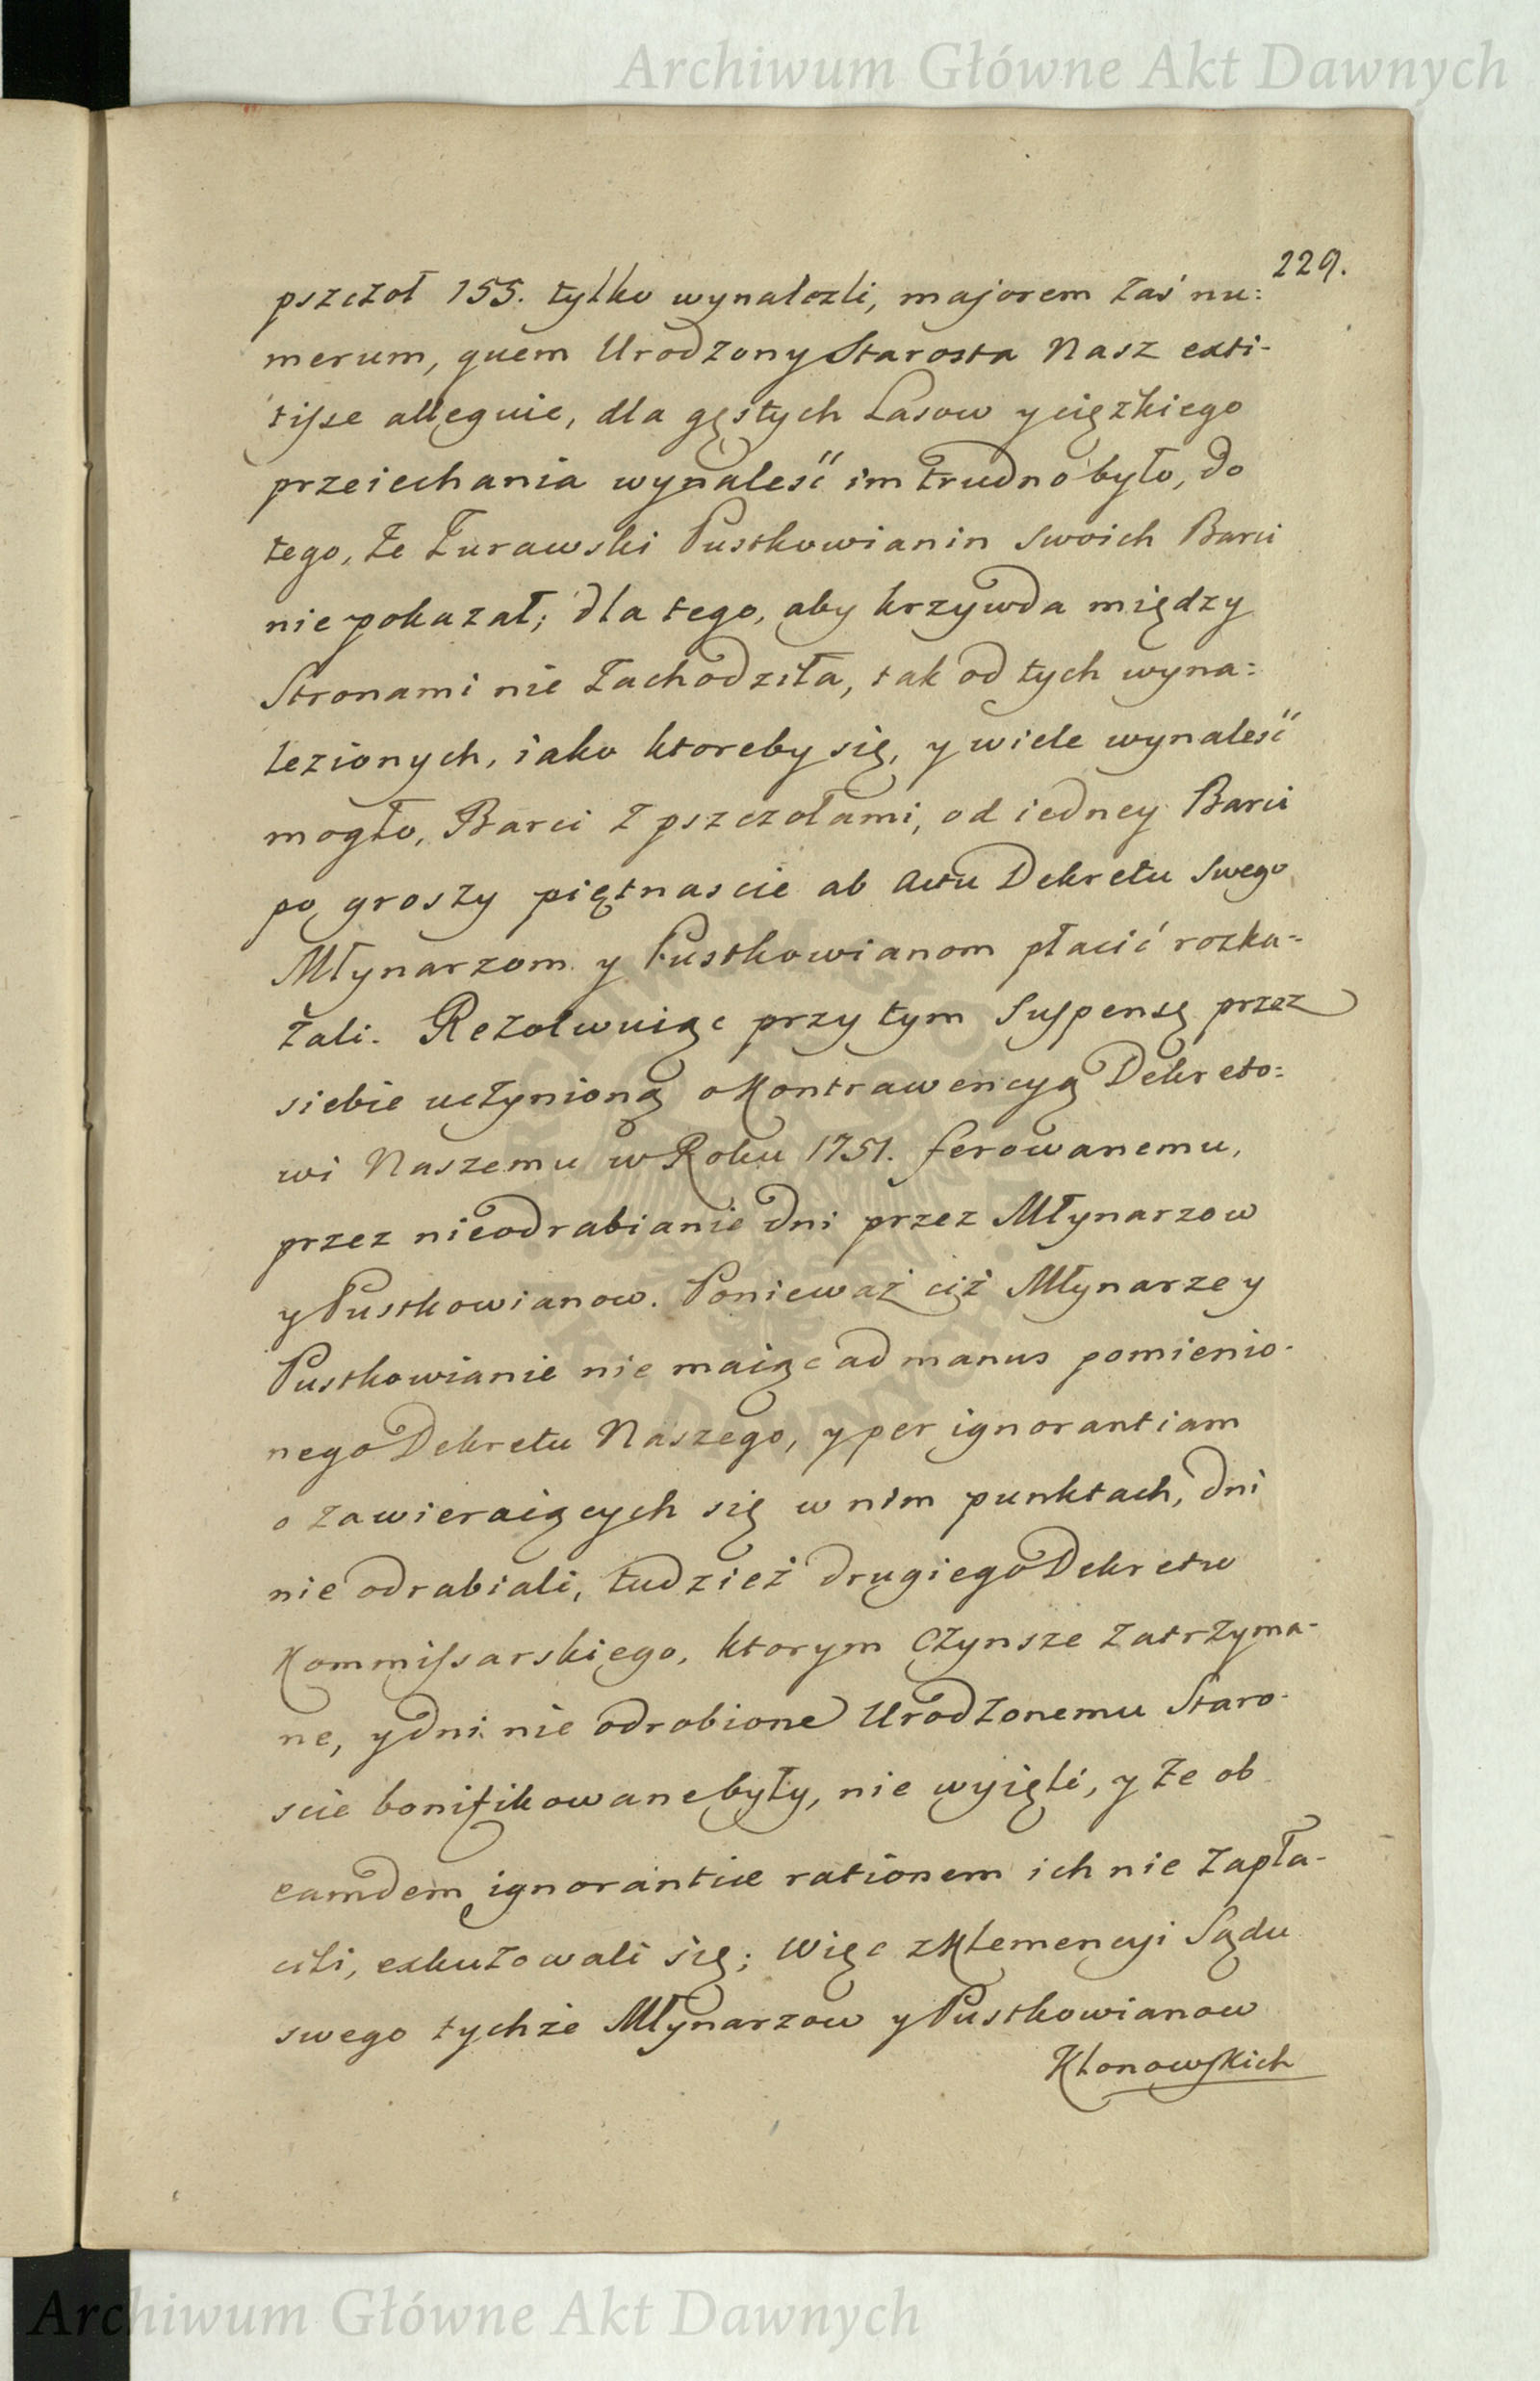 Archiwum Główne Akt Dawnych
229.
pszczoł 155. tylko wynalezli, majorem zaś nu:
merum, quem Urodzony Starosta Nasz exti-
tiſse alleguie, dla gęstych Lasow y cięzkiego
przeiechania wynaleść im trudno było, do
tego, że Żurawski Pustkowianin swoich Barci
nie pokazał; dla tego, aby krzywda między
Stronami nie zachodziła, tak od tych wyna:
lezionych, iako ktoreby się, y wiele wynaleść
mogło, Barci z pszczołami, od iedney Barci
po groszy piętnascie ab Actu Dekretu Swego
Młynarzom y Pustkowianom płacić rozka-
zali. Rezolwuiąc przy tym Suspensę przez
siebie uczynioną o Kontrawencyą Dekreto:
wi Naszemu w Roku 1751. ferowanemu,
przez nieodrabianie dni przez Młynarzow
y Pustkowianow. Ponieważ ciż Młynarze y
Pustkowianie nie maiąc ad manus pomienio-
nego Dekretu Naszego, y per ignorantiam
o zawieraiących się w nim punktach, dni
nie odrabiali, tudzież drugiego Dekretu
Kommiſsarskiego, ktorym Czynsze zatrzyma-
ne, y dni nie odrobione Urodzonemu Staro-
scie bonifikowane były, nie wyięli, y że ob
eamdem ignorantiæ rationem ich nie zapła-
cili, exkuzowali się; Więc z Klemencyi Sądu
swego tychże Młynarzow y Pustkowianow
Klonowſkich
Archiwum Główne Akt Dawnych